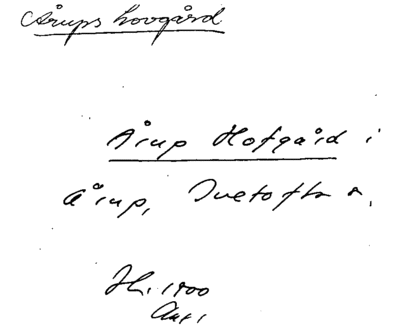 Årups hovgård
Årup Hofgård i
Årup, Ivetofta s.
1700